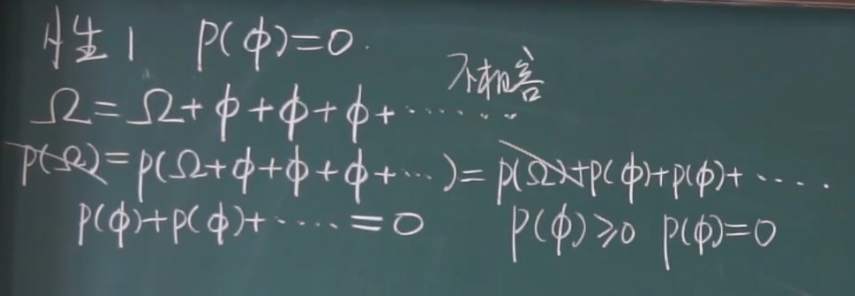 性1 P(ϕ)=0.
不相容
Ω=Ω+ϕ+ϕ+ϕ+……
P(Ω)=P(Ω+ϕ+ϕ+ϕ+…)=P(Ω)+P(ϕ)+P(ϕ)+……
P(ϕ)+P(ϕ)+……=0 P(ϕ)≥0 P(ϕ)=0